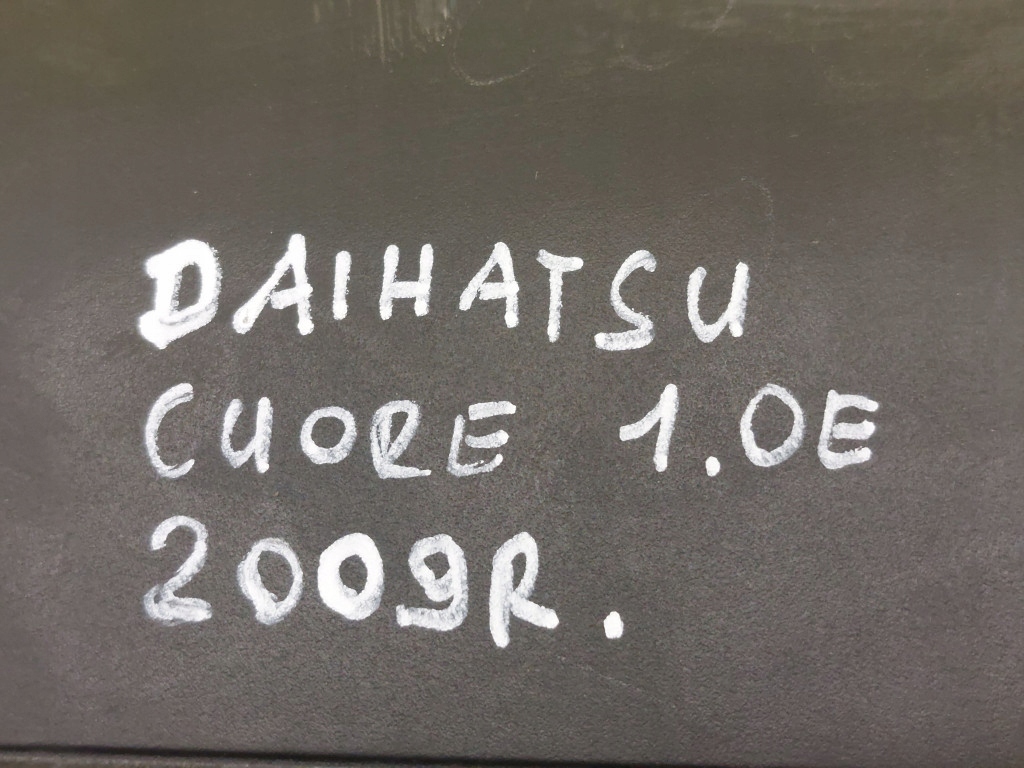 DAIHATSU
CUORE 1.0E
2009R.